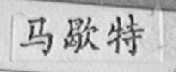 马歇特